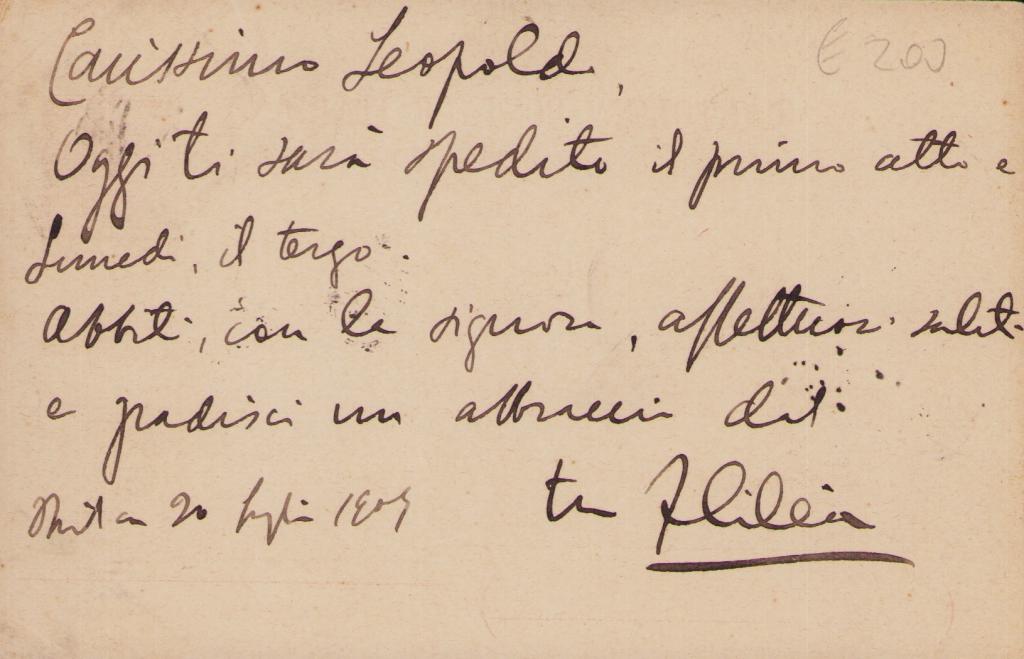 € 200
Carissimo Leopoldo,
Oggi ti sarà spedito il primo atto e
Lunedì, il terzo.
Abbiti, con la signora, affettuosi saluti
e gradisci un abbraccio dal
tuo
20 luglio 1909